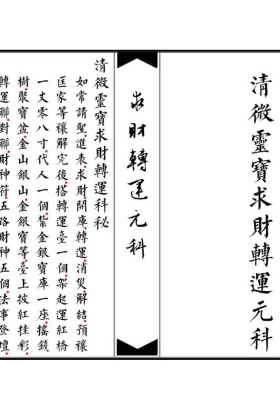 清微靈寶求財轉運元科
求財轉運元科
清微靈寶求財轉運科秘
如常請聖進表求財開庫轉運消災解結預禳
匡家等禳解完後搭轉運臺一個架起運紅橋
一丈零八寸代人一個紮金銀寶庫一座搖錢
樹聚寶盆金山銀山金銀寶等臺上披紅挂彩
轉運聯對聯財神符五路財神五個法事登壇